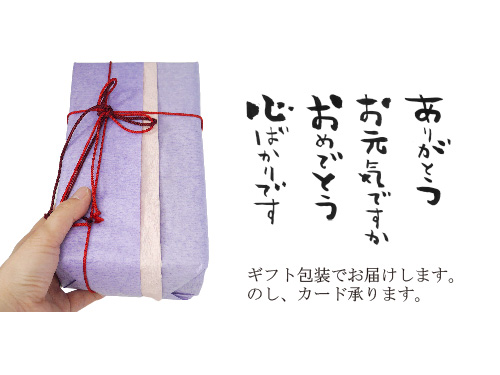 ありがとう
お元気ですか
おめでとう
心ばかりです
ギフト包装でお届けします。
のし、カード承ります。